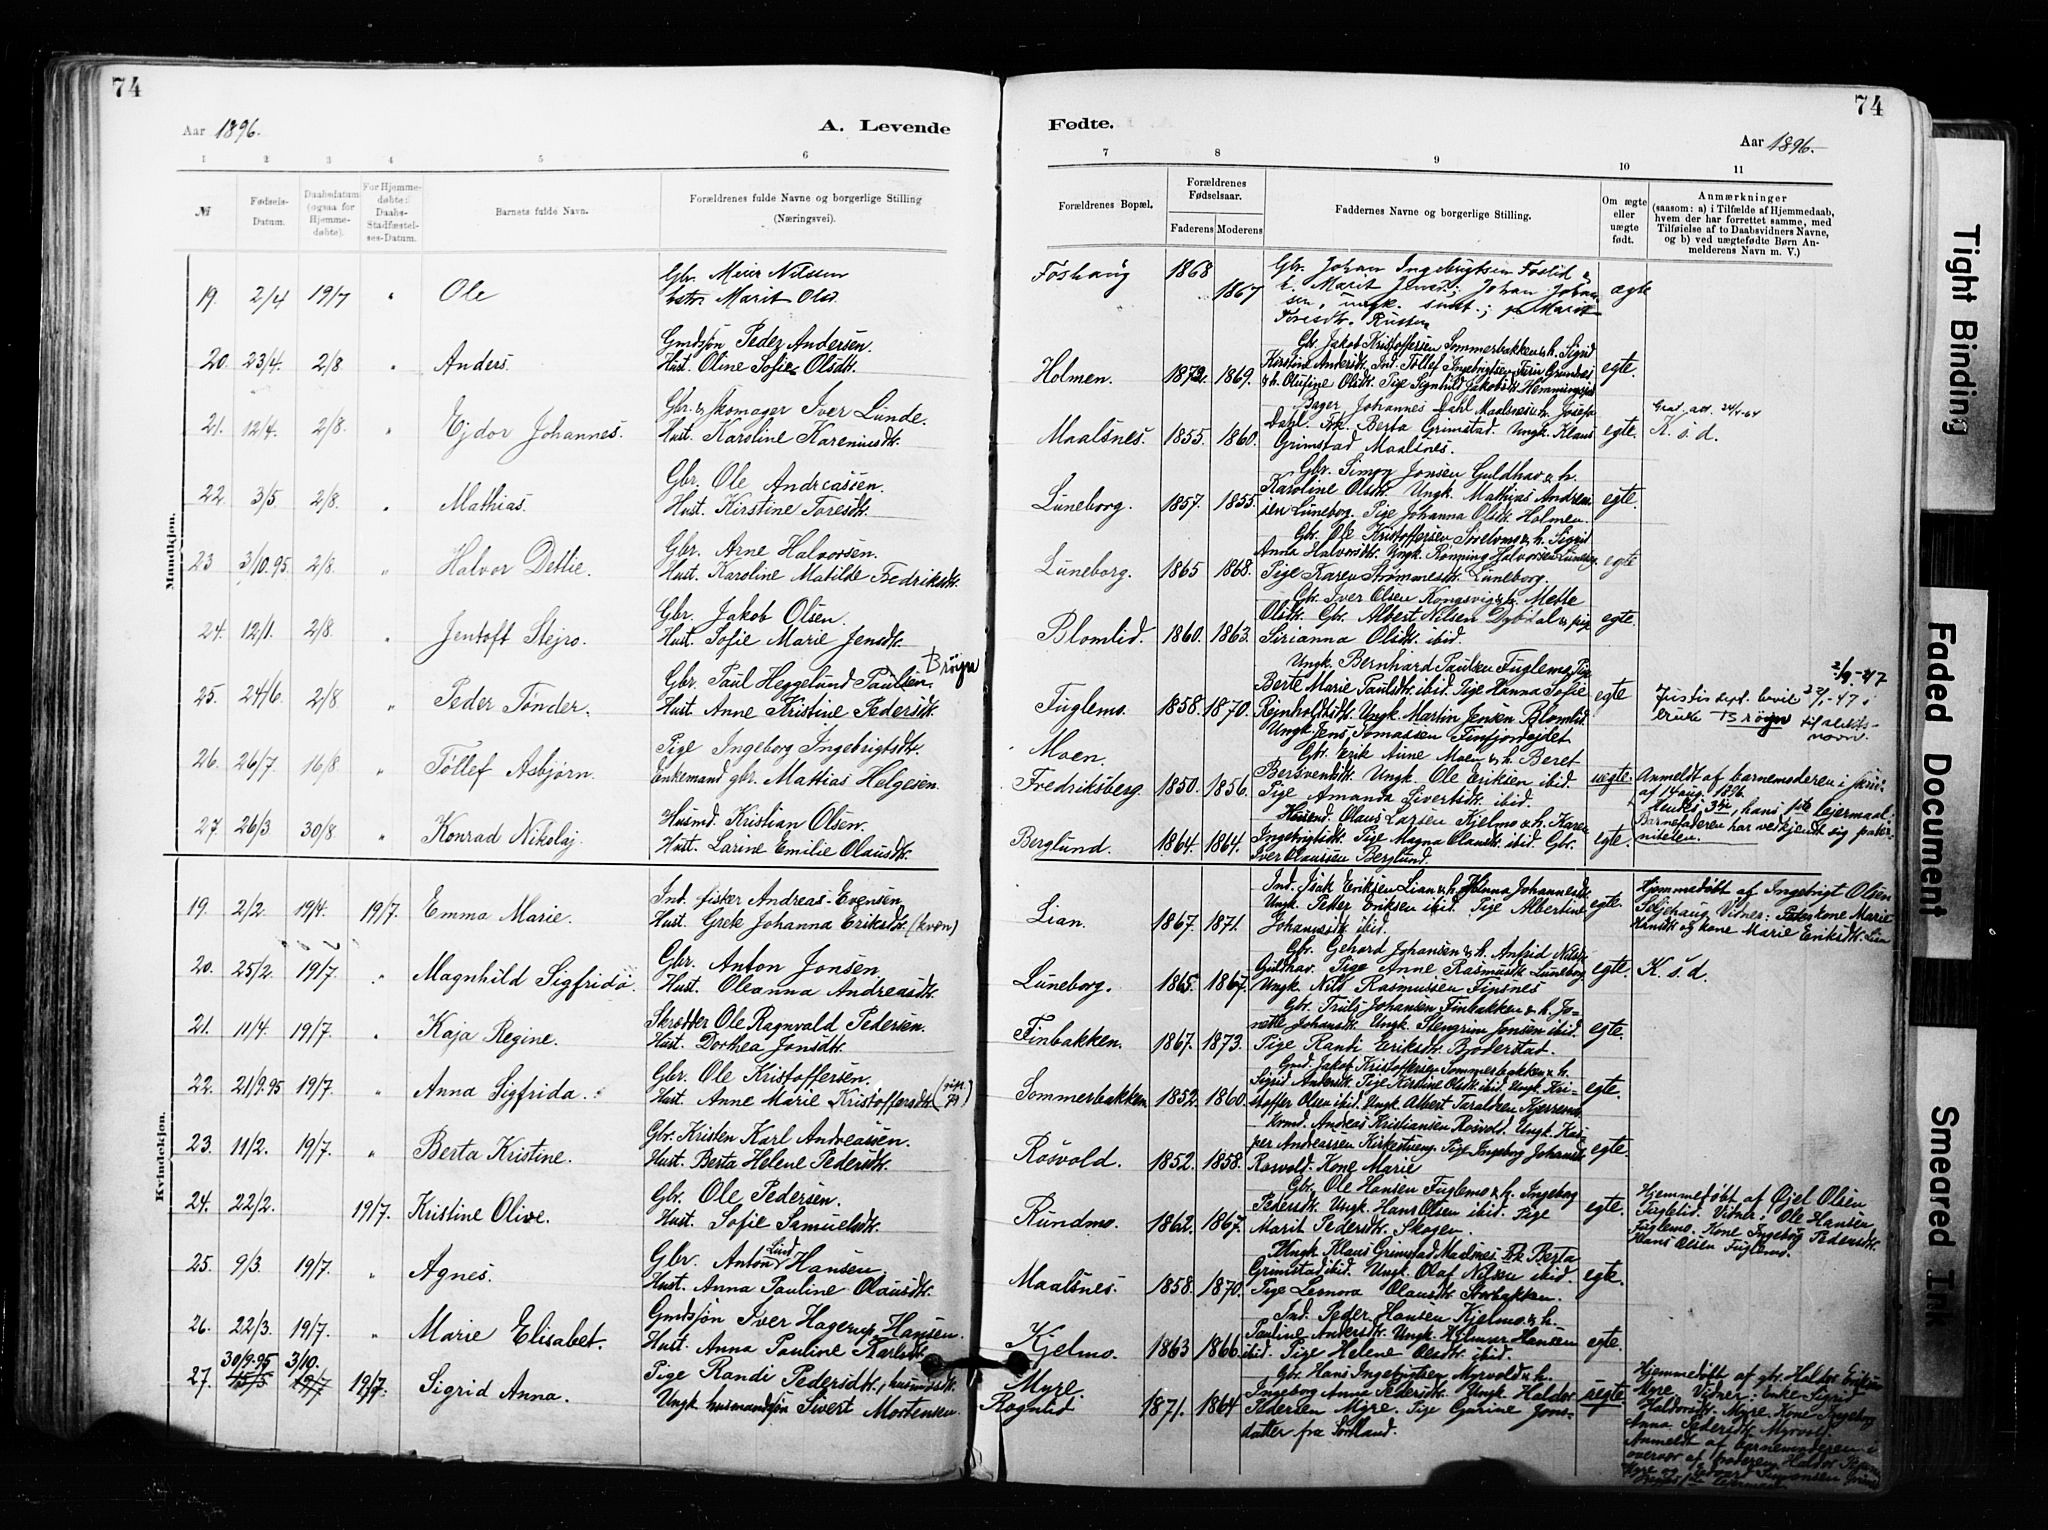 74
Aar 1896.
A. Levende
1 2 3 4 5 6
№
Fødsels-Datum.
Daabsdatum (ogsaa for Hjemme-døbte).
For Hjemme-døbte: Daabs-Stadfæstel-ses-Datum.
Barnets fulde Navn.
Forældrenes fulde Navne og borgerlige Stilling (Næringsvei).
Mandkjøn.
19. 2/4 19/7 " Ole Gbr. Meier Nilssen
hstr. Marit Olsd.
20. 23/4. 2/8 " Anders. Gmdsjøn Peder Andersen.
Hust. Oline Sofie Olsdt.
21. 12/4. 2/8. " Ejdor Johannes. Gbr. & skomager Iver Lunde.
Hust. Karoline Kareniusdt.
22. 3/5 2/8 " Mathias. Gbr. Ole Andreassen.
Hust. Kirstine Toresdt.
23 3/10.95. 2/8. " Halvor Detlie. Gbr. Arne Halvorsen.
Hust. Karoline Matilde Fredriksdt.
24. 12/1. 2/8. " Jentoft Stejro. Gbr. Jakob Olsen.
Hust. Sofie Marie Jensdt.
Brøyn
25. 24/6 2/8 " Peder Tønder. Gbr. Paul Heggelund Paulsen.
Hust. Anne Kristine Pedersdt.
26. 26/7 16/8 " Tøllef Asbjørn. Pige Ingeborg Ingebrigtsdt.
Enkemand gbr. Mathias Helgesen.
27. 26/3 30/8 " Konrad Nikolaj. Husmd. Kristian Olsen.
Hust. Larine Emilie Olausdt.
Kvindekjøn.
19. 2/2. 19/4. 19/7. Emma Marie. Ind. fisker Andreas Evensen
Hust. Grete Johanna Eriksdt. (kvæn)
20. 25/2. 19/7. " Magnhild Sigfrida. Gbr. Anton Jonsen.
Hust. Oleanna Andreasdt.
21. 11/4. 19/7. " Kaja Regine. Skrædder Ole Ragnvald Pedersen.
Hust. Dorthea Jonsdt.
22. 21/9.95 19/7. " Anna Sigfrida. Gbr. Ole Kristoffersen.
Hust. Anne Marie Kristoffersdt.
23. 11/2. 19/7. " Berta Kristine. Gbr. Kristen Karl Andreassen.
Hust. Berta Helene Pedersdt.
24. 22/2. 19/7. Kristine Olive. Gbr. Ole Pedersen.
Hust. Sofie Samuelsdt.
25. 9/3. 19/7. " Agnes. Gbr. Anton Lind Hansen.
Hust. Anna Pauline Olausdt.
26. 22/3. 19/7. " Marie Elisabet. Gmdsjøn Iver Hagerup Hansen.
Hust. Anna Pauline Karlsdt.
30/9.95 3/10.
27. 15/5 19/7 19/7. Sigrid Anna. Pige Randi Pedersdt., husmdsdt.
Ungk. husmandsjøn Sivert Mortensen.
74
Fødte.
Aar 1896.
7 8 9 10 11
Forældrenes Bopæl.
Forældrenes Fødselsaar.
Faderens Moderens
Faddernes Navne og borgerlige Stilling.
Om ægte eller uægte født.
Anmærkninger
(saasom: a) i Tilfælde af Hjemmedaab,
hvem der har forrettet samme, med
Tilføielse af to Daabsvidners Navne,
og b) ved uægtefødte Børn An-
melderens Navn m. V.)
Foshaug 1868 1867 Gbr. Johan Ingebrigtsen Foslid &
h. Marit Jensd.; Johan Johan-
sen, ungk. smst.; p. Marit
Toresdt. Russen ægte
Holmen. 1872. 1869. Gbr. Jakob Kristoffersen Sommerbakken & h. Sigrid
Kirstine Andersdt. Ind. Tollef Ingebrigtsen
& h. Olufine Olsdt. Pige Signhild Jakobsdt. egte.
Maalsnes. 1855. 1860. Bager Johannes Dahl Maalsnes & h. Josefa
Dahl. Frk. Berta Grimstad. Ungk. Klaus
Grimstad Maalsnes. egte. K. s. d.
Luneborg. 1857. 1855. Gbr. Simon Jonsen Guldhav & h.
Karoline Olsdt. Ungk. Mathias Andreas-
sen Luneborg. Pige Johanna Olsdt. Holmen. egte.
Luneborg. 1865 1868. Gbr. Ole Kristoffersen & h. Sigrid
Anna Halvorsdt. Ungk. Rønning Halvorsen Luneborg
Pige Karen Strømmesdt. Luneborg. egte
Blomlid. 1860. 1863. Gbr. Iver Olsen Kongsvig & h. Mette
Olsdt. Gbr. Albert Nilsen Dybdal & pige
Sirianna Olsdt. ibid. egte.
Fuglemo. 1858. 1870. Ungk. Bernhard Paulsen Fuglemo, Pige
Berte Marie Paulsdt. ibid. Pige Hanna Sofie
Rejnholdtsdt. Ungk. Martin Jensen Blomlid.
Ungk. Jens Tomassen Finfjordejdet egte
Justisdept. bevil. til slekts-
navn.
Moen.
Fredriksberg. 1850. 1856. Gbr. Erik Aune Moen & h. Beret
Bersvendsdt. Ungk. Ole Eriksen ibid.
Pige Amanda Sivertsdt. ibid. uegte. Anmeldt af barnemoderen i skriv.
af 14 aug. 1896.
Hendes 3die, hans 1ste lejermaal.
Barnefaderen har vedkjendt sig pater-
niteten.
Berglund. 1864. 1864. Husmd. Olaus Larsen Kjelmo & h. Karen
Ingebrigtsdt. Pige Magna Olausdt. ibid. Gbr.
Iver Olaussen Berglund. egte.
Lian. 1867. 1871. Ind. Isak Eriksen Lian & h. Johannesdt.
Ungk. Peder Eriksen ibid. Pige Albertine
Johannesdt. ibid. egte. Hjemmedøbt af Ingebrigt Olsen
Seljehaug. Vidner: kone Marie
Hansdt. og kone Marie Eriksdt. Lian
Luneborg. 1865. 1867. Gbr. Gehard Johansen & h. Anfrid Nilsdt.
Guldhav. Pige Anne Rasmusdt. Luneborg
Ungk. Nils Rasmussen Finsnes egte. K. s. d.
Finbakken. 1867. 1873. Gbr. Truls Johansen Finbakken & h. Jo-
nette Johansdt. Ungk. Stengrim Jonsen ibid.
Pige Randi Eriksdt. Bjoderstad. egte.
Sommerbakken 1852. 1860. Gmd. Jakob Kristoffersen Sommerbakken & h.
Sigrid Andersdt. Pige Kirstine Olsdt. ibid. Ungk. Kri-
stoffer Olsen ibid. Ungk. Albert Taraldsen egte.
Rosvold. 1852. 1858. Andreas Kristiansen Rosvold. Ungk. Kas-
per Andreassen Kirkestueng. Pige Ingeborg Johansdt.
Rosvold. Kone Marie egte.
Rundmo. 1862. 1867. Gbr. Ole Hansen Fuglemo & h. Ingeborg
Pedersdt. Ungk. Hans Olsen ibid. Pige
Marit Pedersdt. Skogen egte. Hjemmedøbt af Øjel Olsen
Fuglelid. Vidner: Ole Hansen
Fuglemo. Kone Ingeborg Pedersdt.
Hans Olsen Fuglemo.
Maalsnes. 1858. 1870. Ungk. Klaus Grimstad Maalsnes. Frk. Berta
Grimstad ibid. Ungk. Olaf Nilsen ibid.
Pige Leonora Olausdt. Storbakken. egte.
Kjelmo. 1863 1866. Ind. Peder Hansen Kjelmo & h.
Pauline Andersdt. Ungk. Hjelmar Hansen
ibid. Pige Helene Olsdt. ibid. egte.
Myre.
Rognlid 1871. 1864 Gbr. Hans Ingebrigtsen Myrvold & h.
Ingeborg Anna Pedersdt. Ungk. Haldor
Pedersen Myre. Pige Gurine Jons-
datter fra Sortland. uegte Hjemmedøbt af gbr. Haldor Eriksen
Myre. Vidner: Enke Sigrid
Haldorsdt. Myre. Kone Ingeborg
Anna Pedersdt. Myrvold.
Anmeldt af barnemoderen i
overvær af Haldor
Tight Binding
Faded Document
Smeared Ink